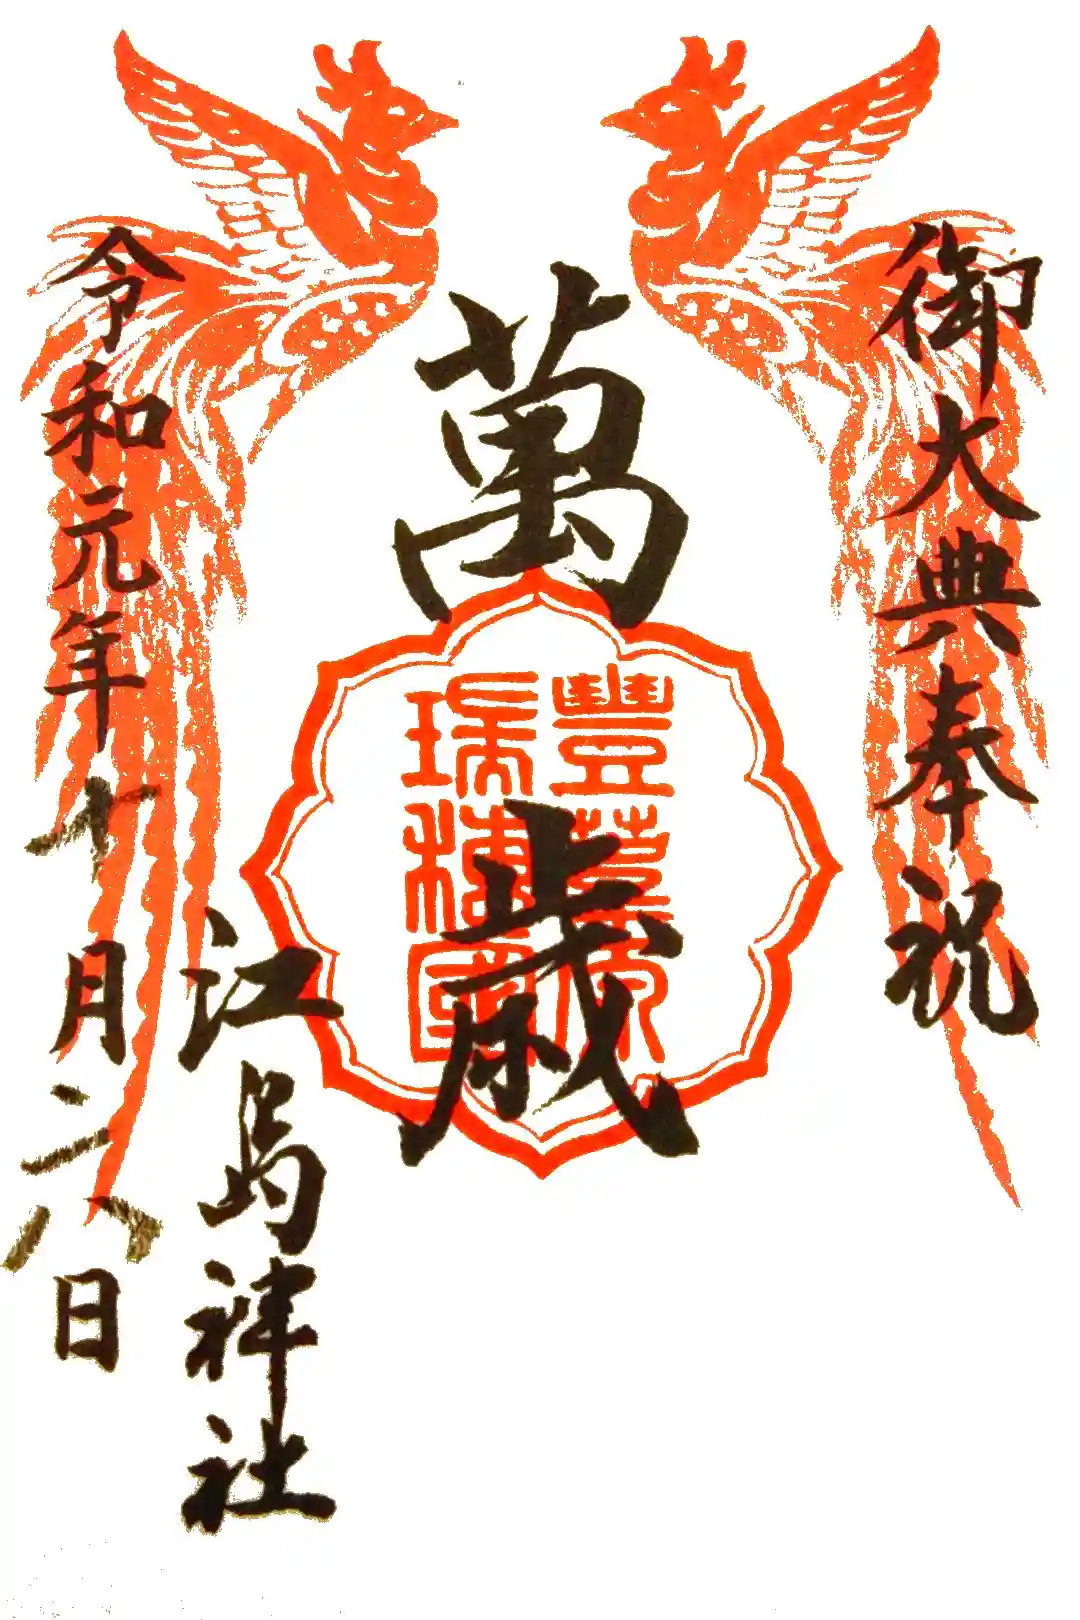 御大典奉祝
萬歳
豐葦原
瑞穂國
江島神社
令和元年十月二八日